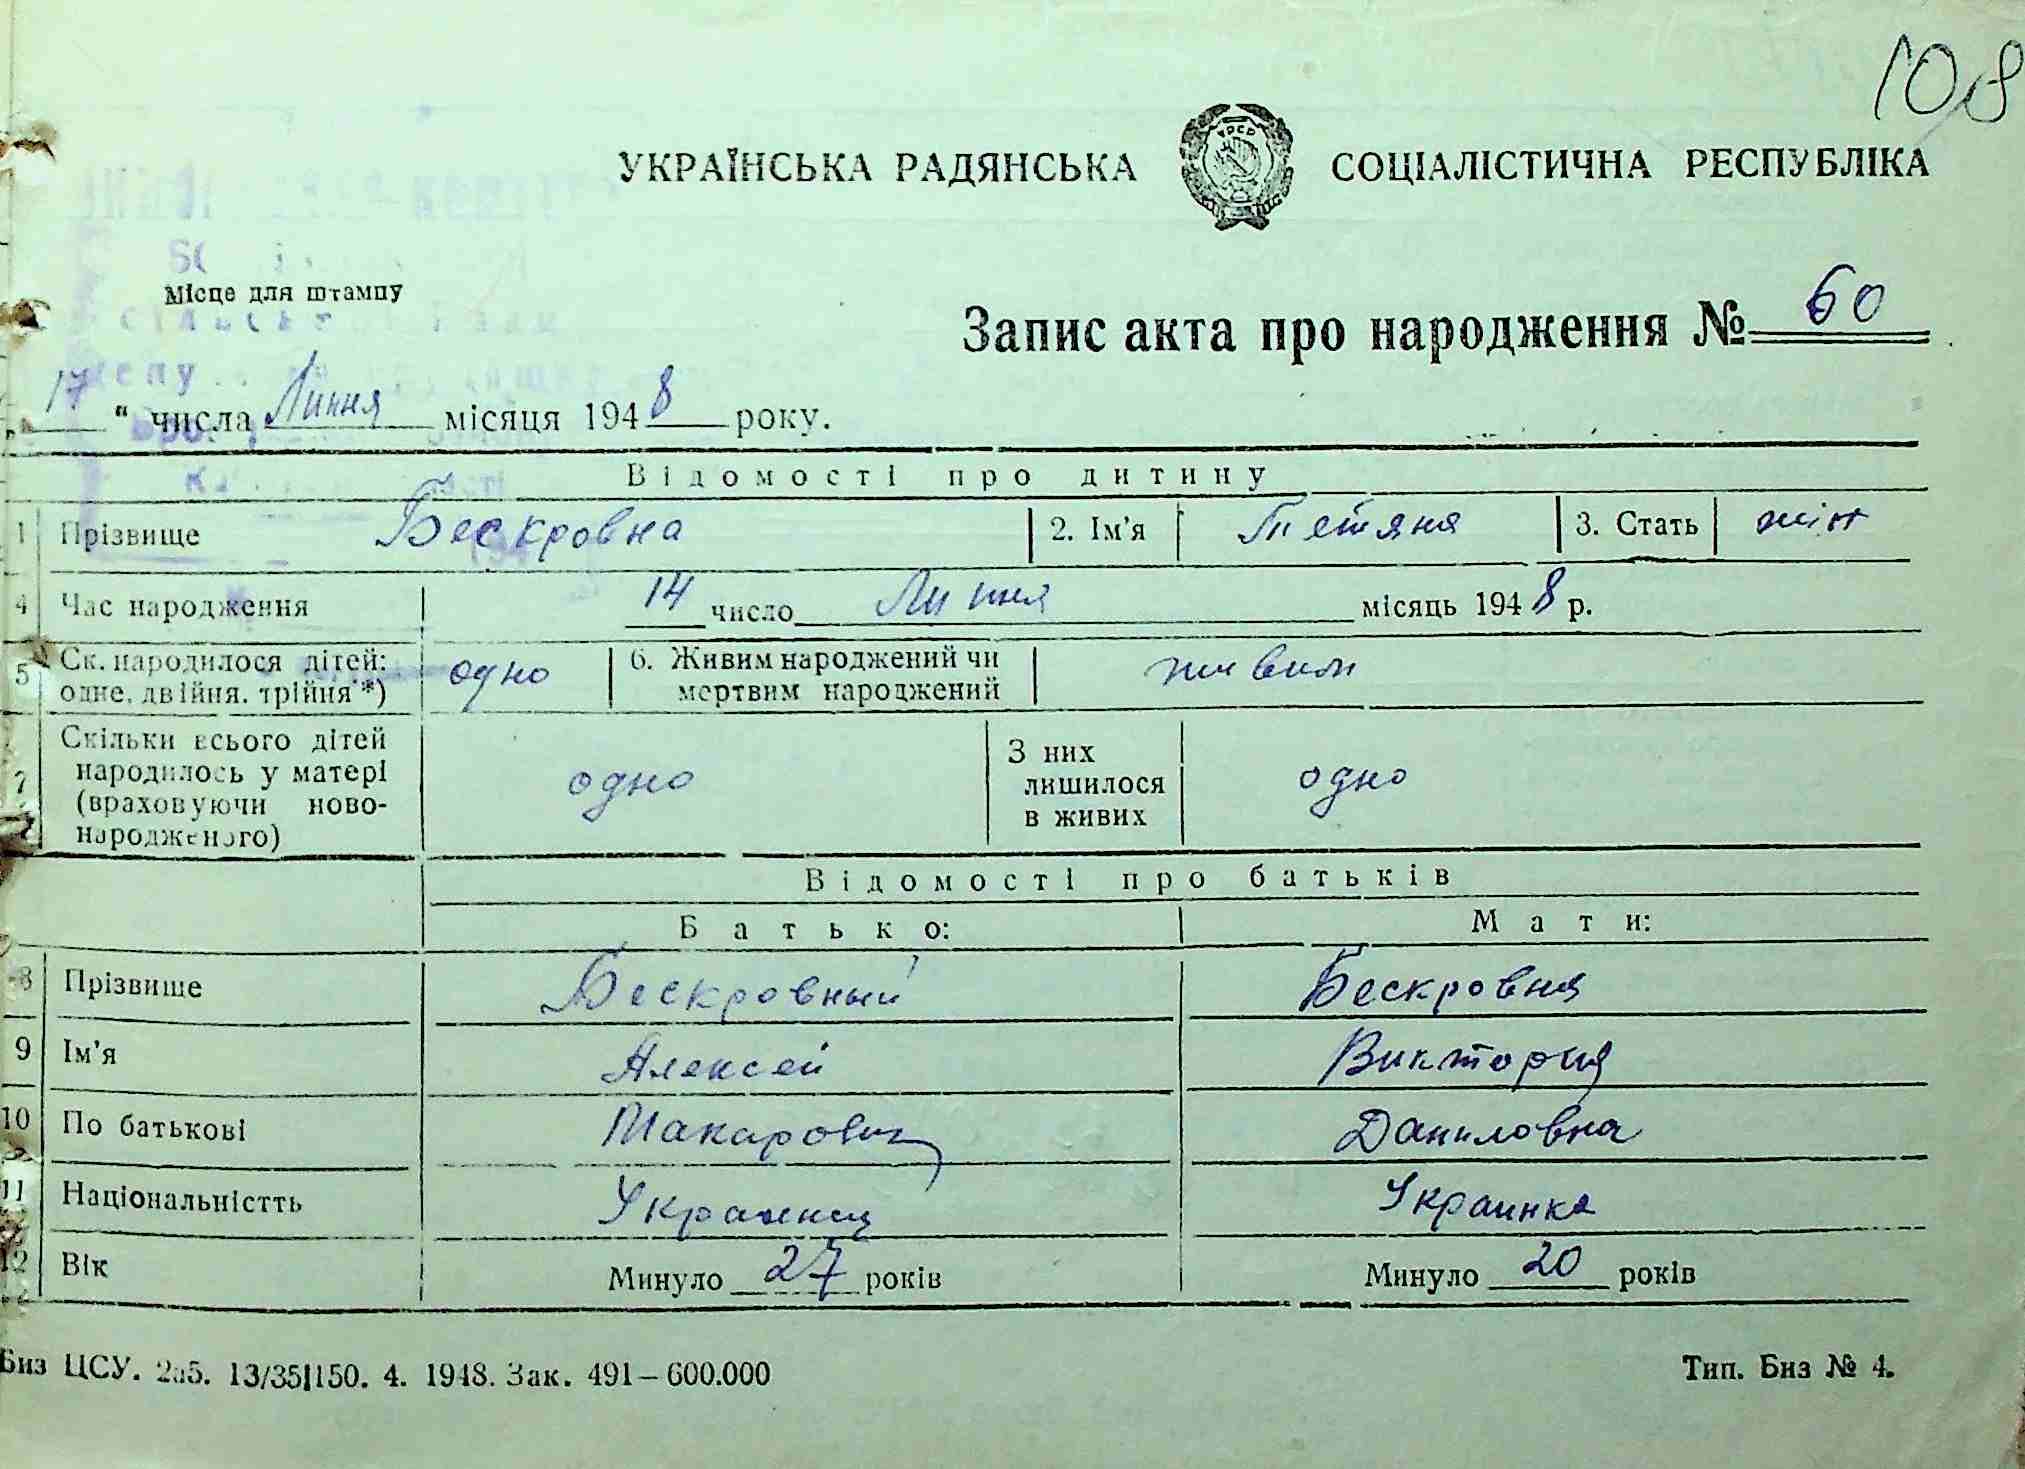 108
УКРАЇНСЬКА РАДЯНСЬКА СОЦІАЛІСТИЧНА РЕСПУБЛІКА
УРСР
Місце для штампу
сільської Ради
Запис акта про народження № 60
17 " числа Липня місяця 1948 року.
Відомості про дитину
1 Прізвище Бескровна 2. Ім'я Тетяна 3. Стать жін
4 Час народження 14 число Липня місяць 1948 р.
5 Ск. народилося дітей: одне, двійня, трійня*) одно 6. Живим народжений чи мертвим народжений живим
7 Скільки всього дітей народилось у матері (враховуючи новонародженого) одно З них лишилося в живих одно
Відомості про батьків
Батько: Мати:
8 Прізвище Бескровный Бескровная
9 Ім'я Алексей Виктория
10 По батькові Макарович Даниловна
11 Національністть Украинец Украинка
12 Вік Минуло 27 років Минуло 20 років
Биз ЦСУ. 2a5. 13/35|150. 4. 1948. Зак. 491–600.000
Тип. Биз № 4.